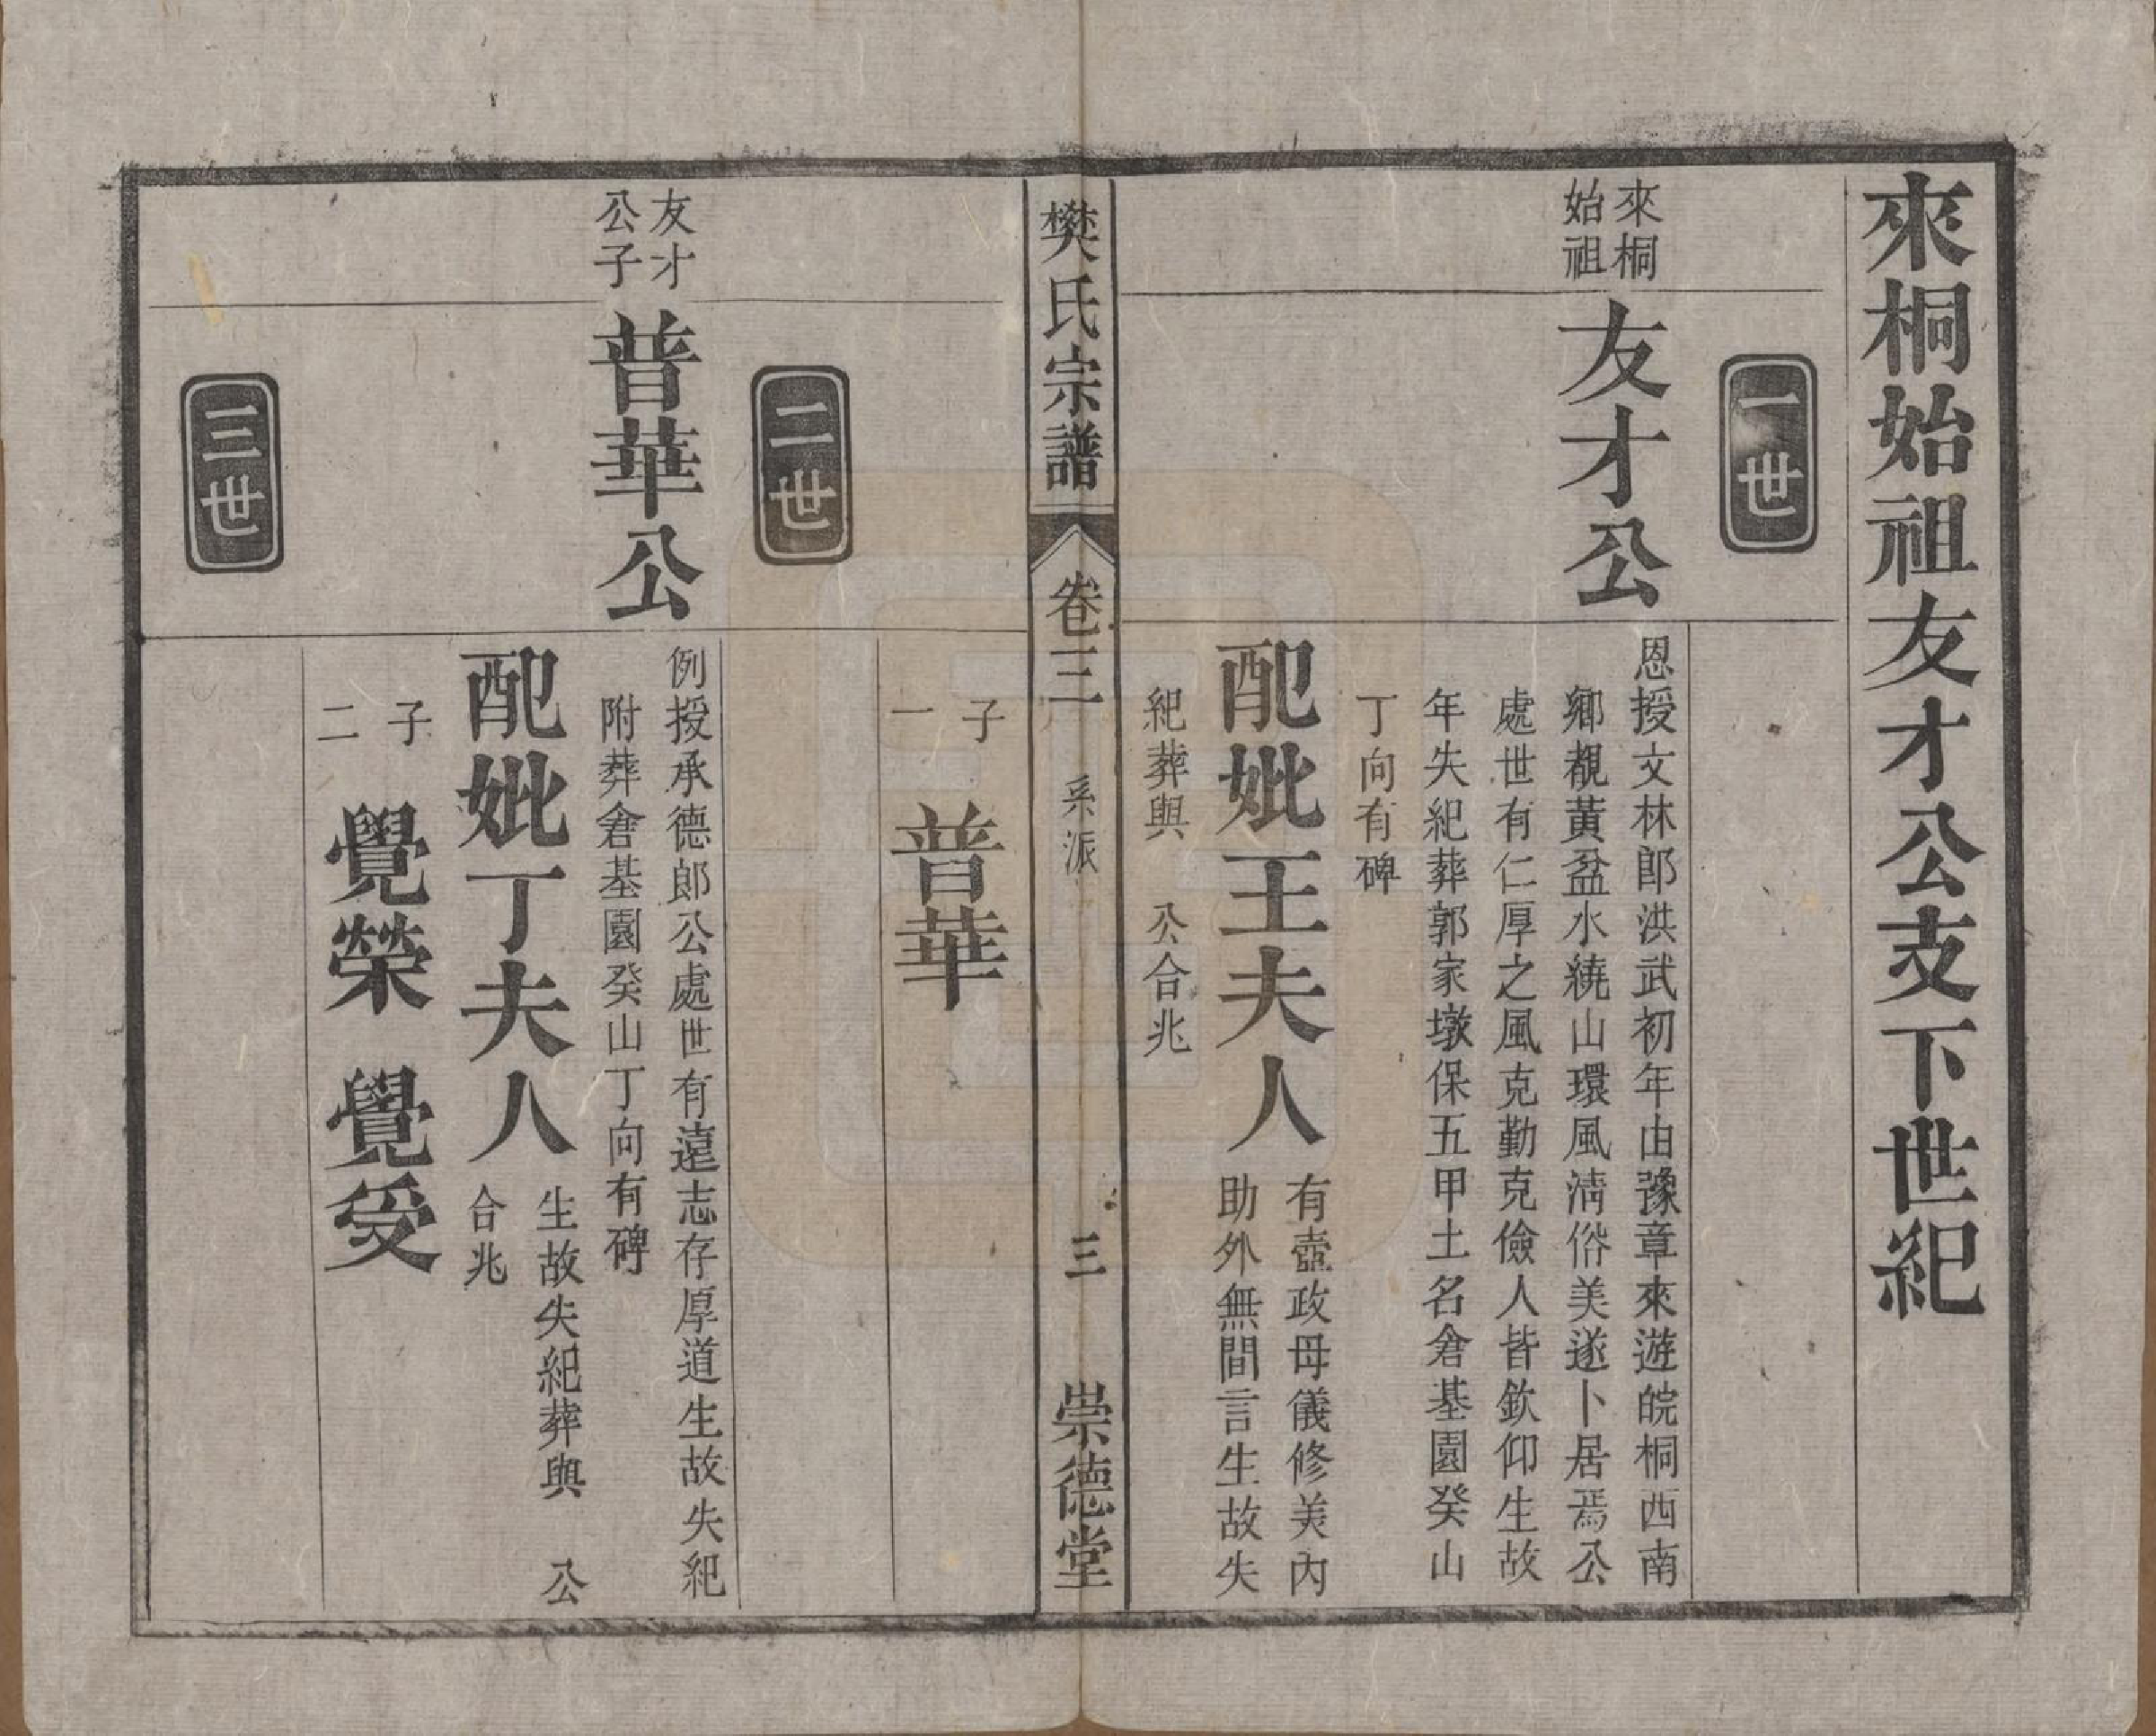 來桐始祖友才公支下世紀
一世
來桐
始祖
友才公
恩授文林郎洪武初年由豫章來遊皖桐西南
鄉覩黃盆水繞山環風淸俗美遂卜居焉公
處世有仁厚之風克勤克儉人皆欽仰生故
年失紀葬郭家墩保五甲土名倉基園癸山
丁向有碑
配妣王夫人
有壼政母儀修美內
助外無間言生故失
紀葬與 公合兆
樊氏宗譜 卷三 系派 三 崇德堂
子
一
普華
二世
友才
公子
普華公
例授承德郎公處世有遠志存厚道生故失紀
附葬倉基園癸山丁向有碑
配妣丁夫人
生故失紀葬與 公
合兆
子
二
覺榮 覺受
三世